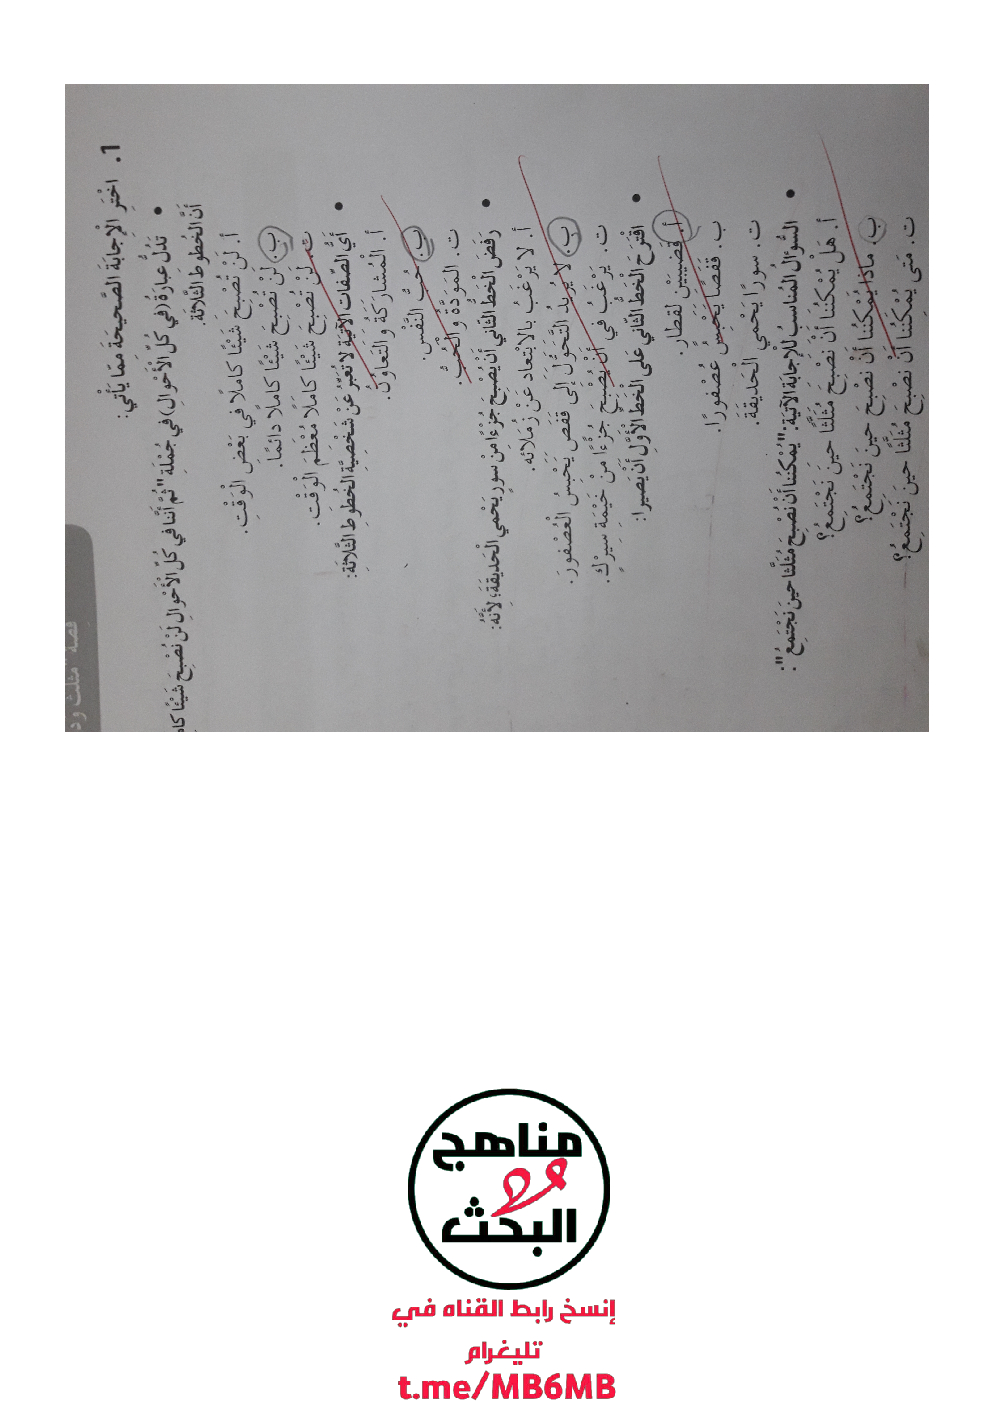 قصة "مثلث و د
1. اخْتَرِ الْإِجابَةَ الصَّحيحَةَ مِمّا يَأْتي:
• تَدُلُّ عِبارَةُ (في كُلِّ الْأَحْوالِ) في جُمْلَةِ "ثُمَّ أَنَّنا في كُلِّ الْأَحْوالِ لَنْ نُصْبِحَ شَيْئًا كامِ
أَنَّ الْخُطوطَ الثَّلاثَةَ:
أ. لَنْ تُصْبِحَ شَيْئًا كامِلًا في بَعْضِ الْوَقْتِ.
ب. لَنْ تُصْبِحَ شَيْئًا كامِلًا دائِمًا.
ت. لَنْ تُصْبِحَ شَيْئًا كامِلًا مُعْظَمَ الْوَقْتِ.
• أَيُّ الصِّفاتِ الْآتِيَةِ لا تُعَبِّرُ عَنْ شَخْصِيَّةِ الْخُطوطِ الثَّلاثَةِ:
أ. الْمُشارَكَةُ وَالتَّعاوُنُ.
ب. حُبُّ النَّفْسِ.
ت. الْمَوَدَّةُ وَالْحُبُّ.
• رَفَضَ الْخَطُّ الثّاني أَنْ يُصْبِحَ جُزْءًا مِنْ سورٍ يَحْمي الْحَديقَةَ؛ لِأَنَّهُ:
أ. لا يَرْغَبُ بِالِابْتِعادِ عَنْ زُمَلائِهِ.
ب. لا يُريدُ التَّحَوُّلَ إِلى قَفَصٍ يَحْبِسُ الْعُصْفورَ.
ت. يَرْغَبُ في أَنْ يُصْبِحَ جُزْءًا مِنْ خَيْمَةِ سيرْك.
• اقْتَرَحَ الْخَطُّ الثّاني عَلى الْخَطِّ الْأَوَّلِ أَنْ يَصيرا:
أ. قَضيبَيْنِ لِقِطارٍ.
ب. قَفَصًا يَحْبِسُ عُصْفورًا.
ت. سورًا يَحْمي الْحَديقَةَ.
• السُّؤالُ الْمُناسِبُ لِلْإِجابَةِ الْآتِيَةِ: "يُمْكِنُنا أَنْ نُصْبِحَ مُثَلَّثًا حينَ نَجْتَمِعُ":
أ. هَلْ يُمْكِنُنا أَنْ نُصْبِحَ مُثَلَّثًا حينَ نَجْتَمِعُ؟
ب. ماذا يُمْكِنُنا أَنْ نُصْبِحَ حينَ نَجْتَمِعُ؟
ت. مَتى يُمْكِنُنا أَنْ نُصْبِحَ مُثَلَّثًا حينَ نَجْتَمِعُ؟
مناهج
البحث
إنسخ رابط القناه في
تليغرام
t.me/MB6MB